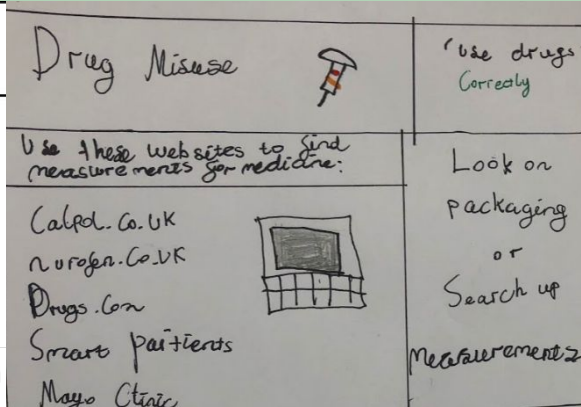 Drug Misuse
'use drugs
Correctly
Use these websites to find
measurements for medicine:
Calpol.co.uk
nurofen.co.uk
Drugs.com
Smart paitients
Mayo Clinic
Look on
packaging
or
Search up
measurements